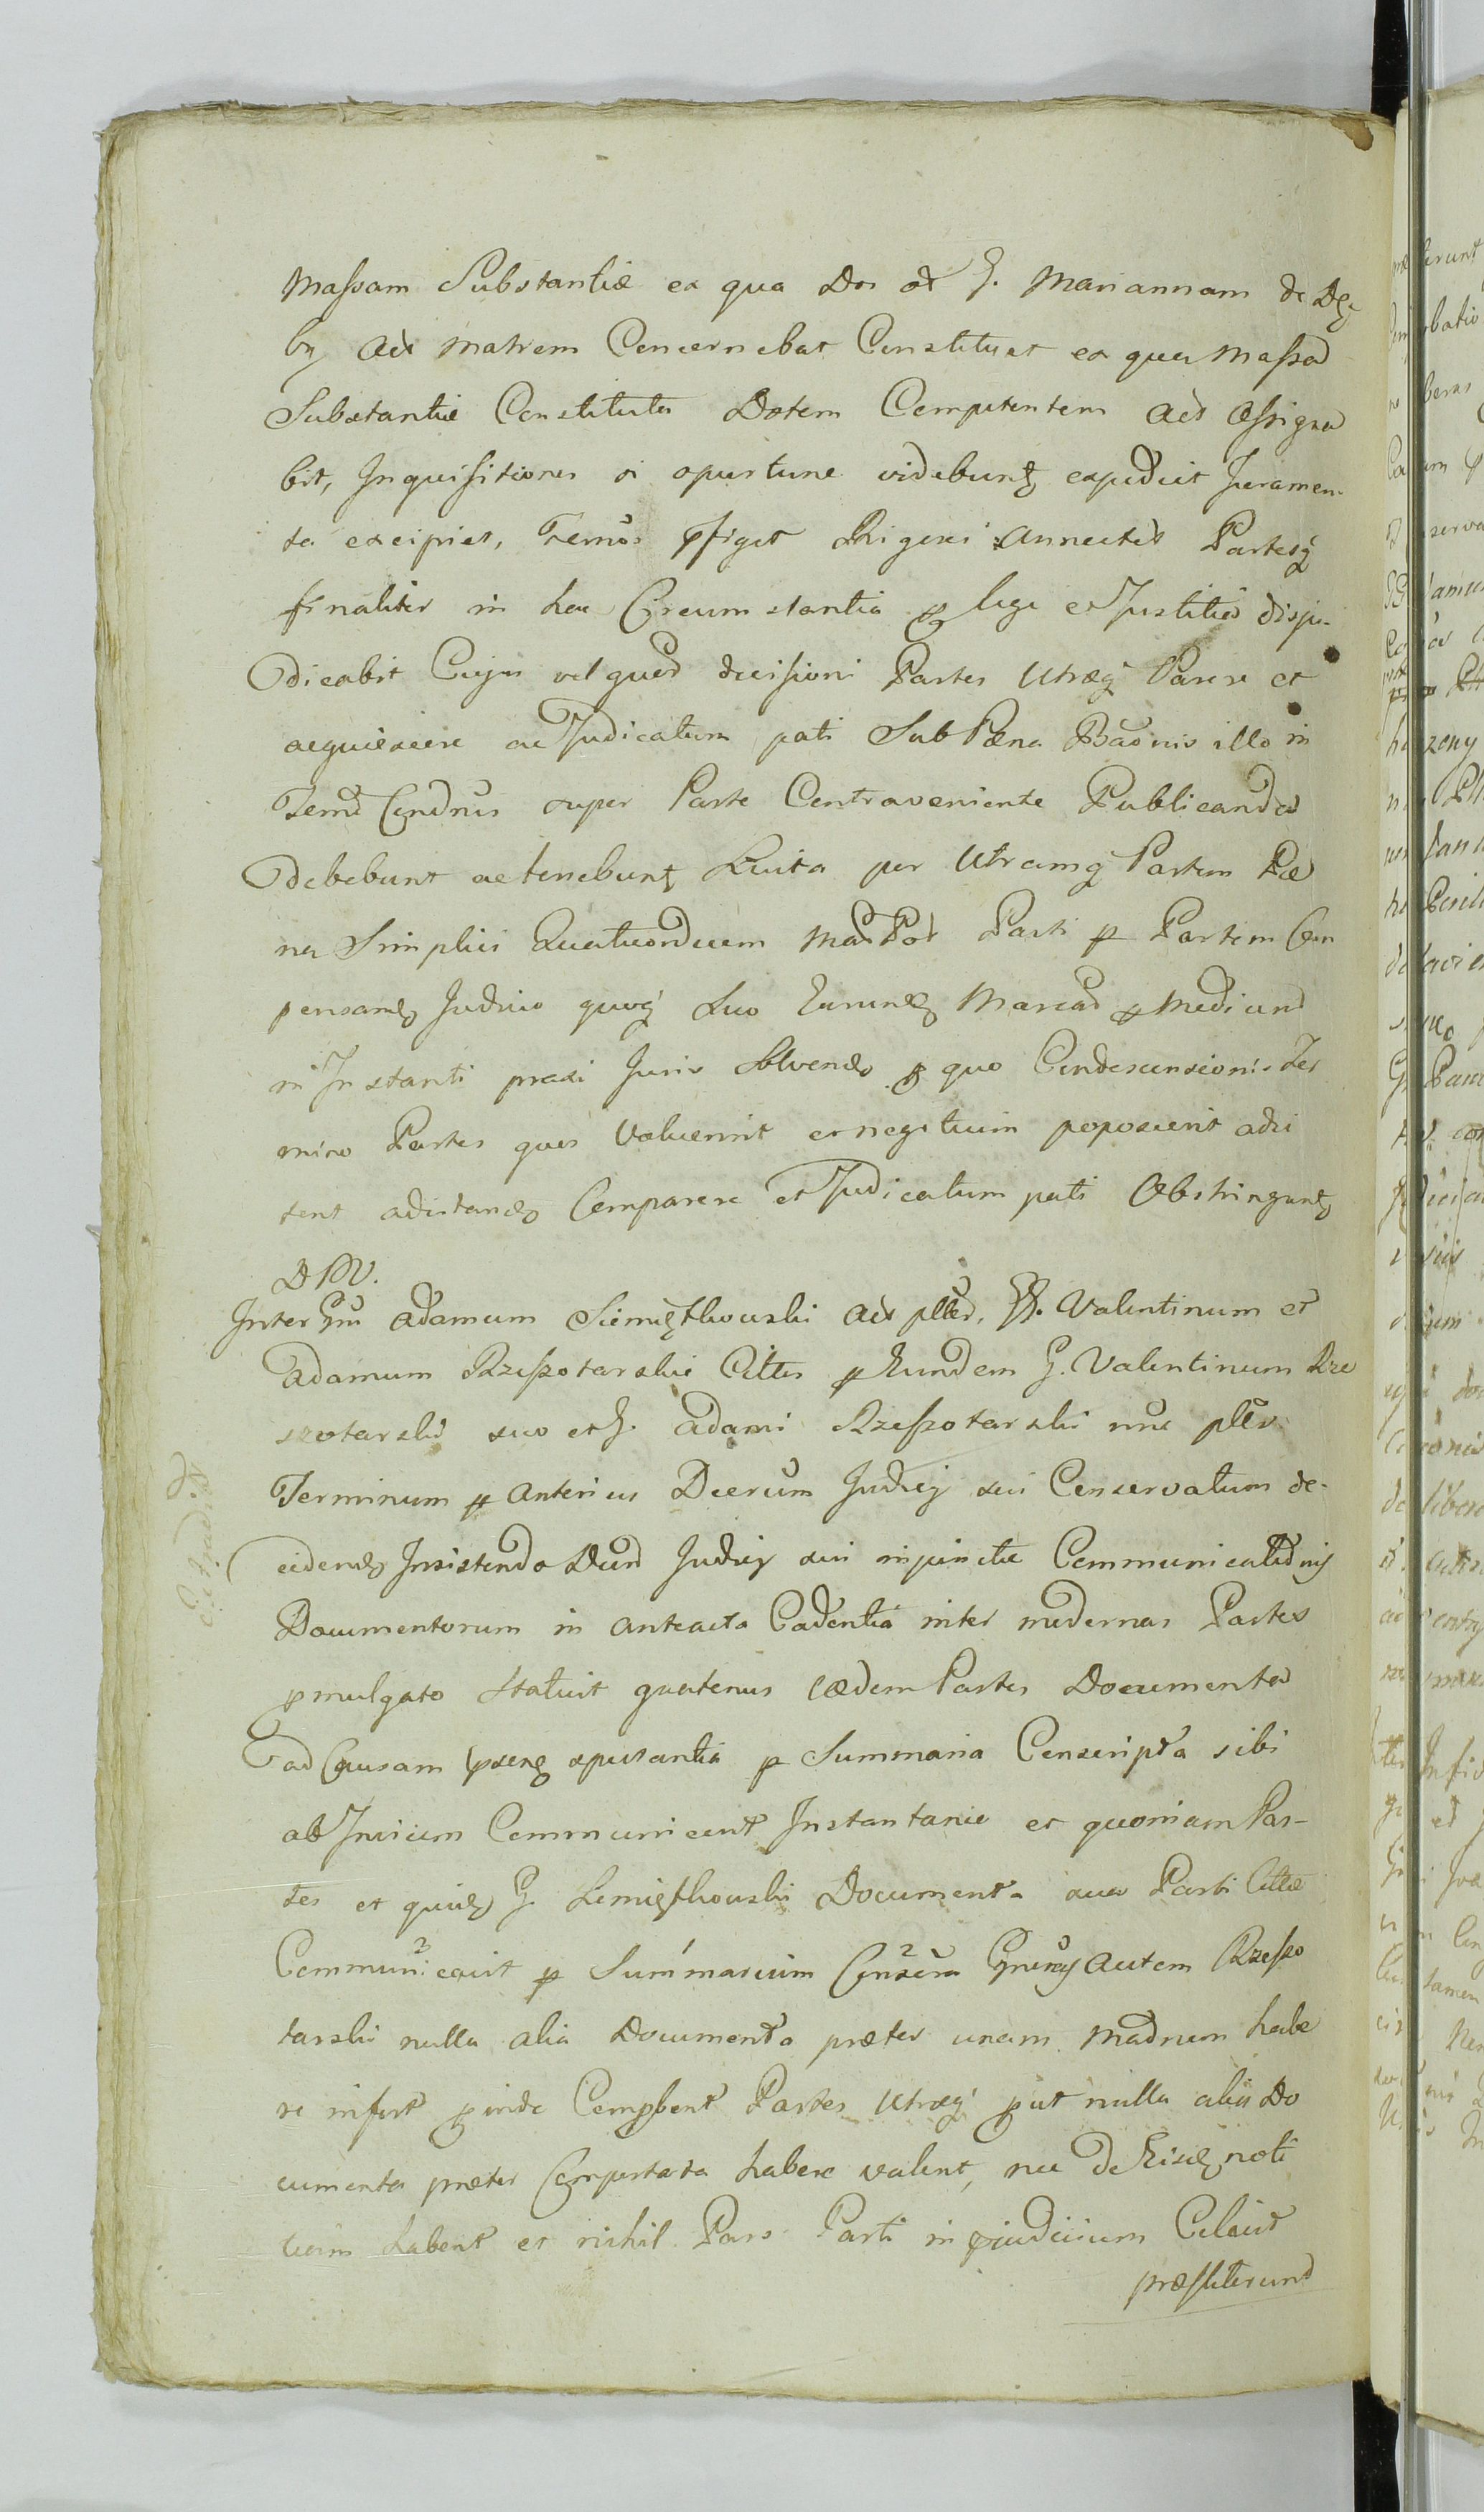 Massam Substantiæ ex qua Dos et G. Mariannam de Dę
by Act matrem Concernebat Constituet ex qua Massa
Substantiæ Constituta Dotem Competentem Act Assigna
bit, Inquisitiones si oportune videbunt expediet Juramen-
ta excipiet, Termos pfiget Rigores annectet Partesq
finaliter in hac Circumstantia p lege et Justitia diju-
dicabit Cujus vel quod decisioni Partes Utræq Parere et
acquiescere ac Judicatum pati Sub Pæna Baonis illo in
Termo Condnis super Parte Contraveniente Publicanda
debebunt ac tenebunt Luita per Utramq Partem Pæ
na Simplici Quatuordecem Mar Pol Parti p Partem Com
pensando Judicio quoq Luo Earund Marcas p Medium
in Instanti praxi Juris Solvendo p quo Condescensionis Ter
mino Partes quos Voluerint et negotium poposcerit adci
tent adcitando Comparere et Judicatum pati Obstringunt
DPW.
Inter Gm Adamum Siemiętkowski Act pltes, GG. Valentinum et
Adamum Rzeszotarskie Cittos p Eundem G. Valentinum Rze
szotarski suo et G. Adami Rzeszotarski nne pltes
Terminum p Anterius Decrum Judicy sui Conservatum de-
cidendo Insistendo Deco Judicy sui injunctæ Communicationis
Documentorum in anteacta Cadentia inter modernas Partes
pmulgato Statuit quatenus eædem Partes Documenta
ad Causam psene spectantia p Summaria Conscripta sibi
ab Invicem Communicent Instantanie et quoniam Par-
tes et quidem G. Siemiętkowski Documenta sua Parti Cittæ
Communicavit p Summarium Conscra Gnerosy autem Rzeszo
tarski nulla alia Documenta præter unam Madnum habe
re infert pinde Compbent Partes Utræq put nulla alia Do
cumenta præter Comportata habere valent, nec de Eisdem noti
tiam habent et nihil Pars Parti in pjudicium Celavit
præstiterunt